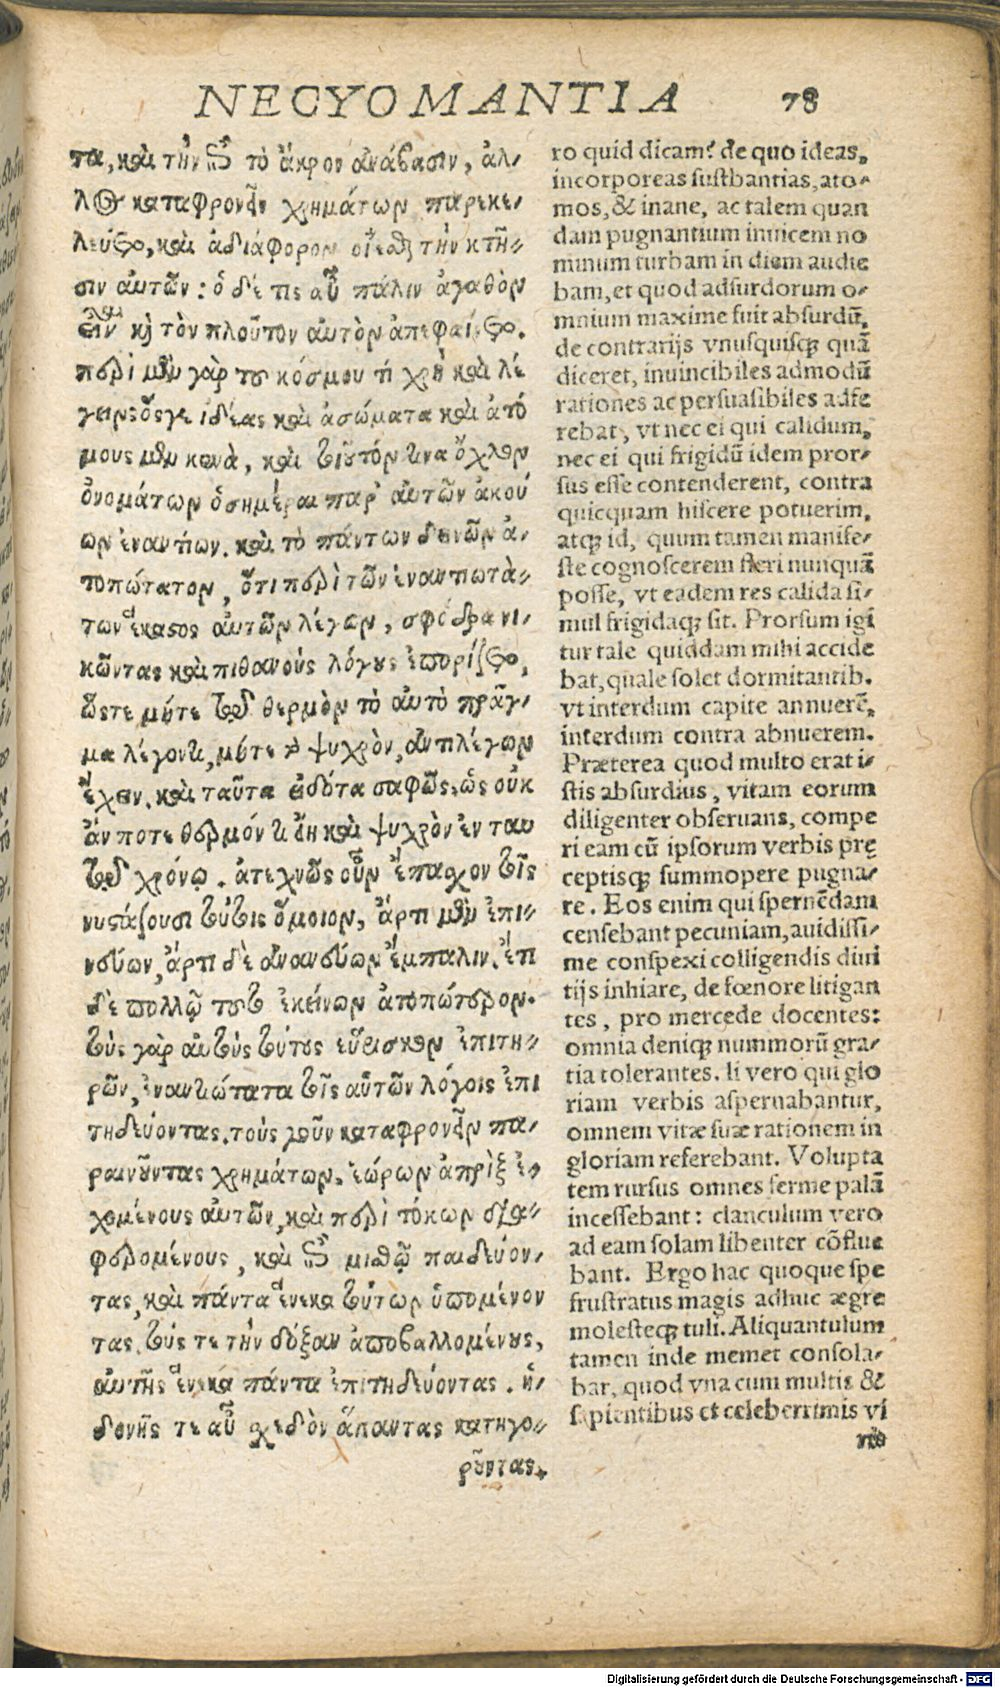 NECYOMANTIA 78
τα, καὶ τὴν ἐπὶ τὸ ἄκρον ἀνάβασιν, ἄλ-
λος καταφρονεῖν χρημάτων παρεκε-
λεύετο, καὶ ἀδιάφορον οἴεσθαι τὴν κτῆ-
σιν αὐτῶν: ὁ δέ τις αὖ πάλιν ἀγαθὸν
εἶναι κὶ τὸν πλοῦτον αὐτὸν ἀπεφαίνετο.
περὶ μὲν γὰρ τοῦ κόσμου τί χρὴ καὶ λέ
γειν, ὅςγε ἰδέας καὶ ἀσώματα καὶ ἀτό
μους μὲν κενὰ, καὶ τοιοῦτόν τινα ὄχλον
ὀνομάτων ὁσημέραι παρ' αὐτῶν ἀκού
ων ἐναντίων. καὶ τὸ πάντων δεινῶν ἀ-
τοπώτατον, ὅτι περὶ τῶν ἐναντιωτά-
των ἕκαστος αὐτῶν λέγων, σφόδρα νι-
κῶντας καὶ πιθανοὺς λόγους ἐπορίζετο,
ὥςτε μήτε τῷ θερμὸν τὸ αὐτὸ πρᾶγ-
μα λέγοντι, μήτε τῷ ψυχρὸν, ἀντιλέγων
ἔχειν. καὶ ταῦτα εἰδότα σαφῶς, ὡς οὐκ
ἄν ποτε θερμόν τι εἴη καὶ ψυχρὸν ἐν ταυ
τῷ χρόνῳ. ἀτεχνῶς οὖν ἔπαχον τοῖς
νυςάζουσι τούτοις ὅμοιον, ἄρτι μὲν ἐπι-
νεύων, ἄρτι δὲ ἀνανεύων ἔμπαλιν. ἔτι
δὲ πολλῷ τοῦτο ἐκείνων ἀτοπώτερον.
τοὺς γὰρ αὐτοὺς τούτους εὕρισκον ἐπιτη-
ρῶν, ἐναντιώτατα τοῖς αὑτῶν λόγοις ἐπι
τηδεύοντας. τοὺς γοῦν καταφρονεῖν πα-
ραινοῦντας χρημάτων, ἑώρων ἀπρὶξ ἐ-
χομένους αὐτῶν, καὶ περὶ τόκων δια-
φερομένους, καὶ ἐπὶ μισθῷ παιδεύον-
τας, καὶ πάντα ἕνεκα τούτων ὑπομένον
τας. τούς τε τὴν δόξαν ἀποβαλλομένους,
αὐτῆς ἕνεκα πάντα ἐπιτηδεύοντας. ἡ-
δονῆς τε αὖ χεδὸν ἅπαντας κατηγο-
ροῦντας.
ro quid dicam? de quo ideas,
incorporeas sustbantias, ato-
mos, & inane, ac talem quan
dam pugnantium inuicem no
minum turbam in diem audie
bam, et quod adsurdorum o-
mnium maxime fuit absurdũ,
de contrarijs vnusquisq; quũ
diceret, inuincibiles admodũ
rationes ac persuasibiles adfe
rebat, vt nec ei qui calidum,
nec ei qui frigidũ idem pror-
sus esse contenderent, contra
quicquam hiscere potuerim,
atq; id, quum tamen manife-
ste cognoscerem fieri nunquã
posse, vt eadem res calida si-
mul frigidaq; sit. Prorsum igi
tur tale quiddam mihi accide
bat, quale solet dormitantib.
vt interdum capite annuerẽ,
interdum contra abnuerem.
Præterea quod multo erat i-
stis absurdius, vitam eorum
diligenter obseruans, compe
ri eam cũ ipsorum verbis prę
ceptisq; summopere pugna-
re. Eos enim qui spernẽdam
censebant pecuniam, auidissi-
me conspexi colligendis diui
tijs inhiare, de fœnore litigan
tes, pro mercede docentes:
omnia deniq; nummorũ gra-
tia tolerantes. ii vero qui glo
riam verbis aspernabantur,
omnem vitæ suæ rationem in
gloriam referebant. Volupta
tem rursus omnes ferme palã
incessebant: clanculum vero
ad eam solam libenter cõflue
bant. Ergo hac quoque spe
frustratus magis adhuc ægre
molesteq; tuli. Aliquantulum
tamen inde memet consola-
bar, quod vna cum multis &
sapientibus et celeberrimis vi
ris
Digitalisierung gefördert durch die Deutsche Forschungsgemeinschaft - DFG